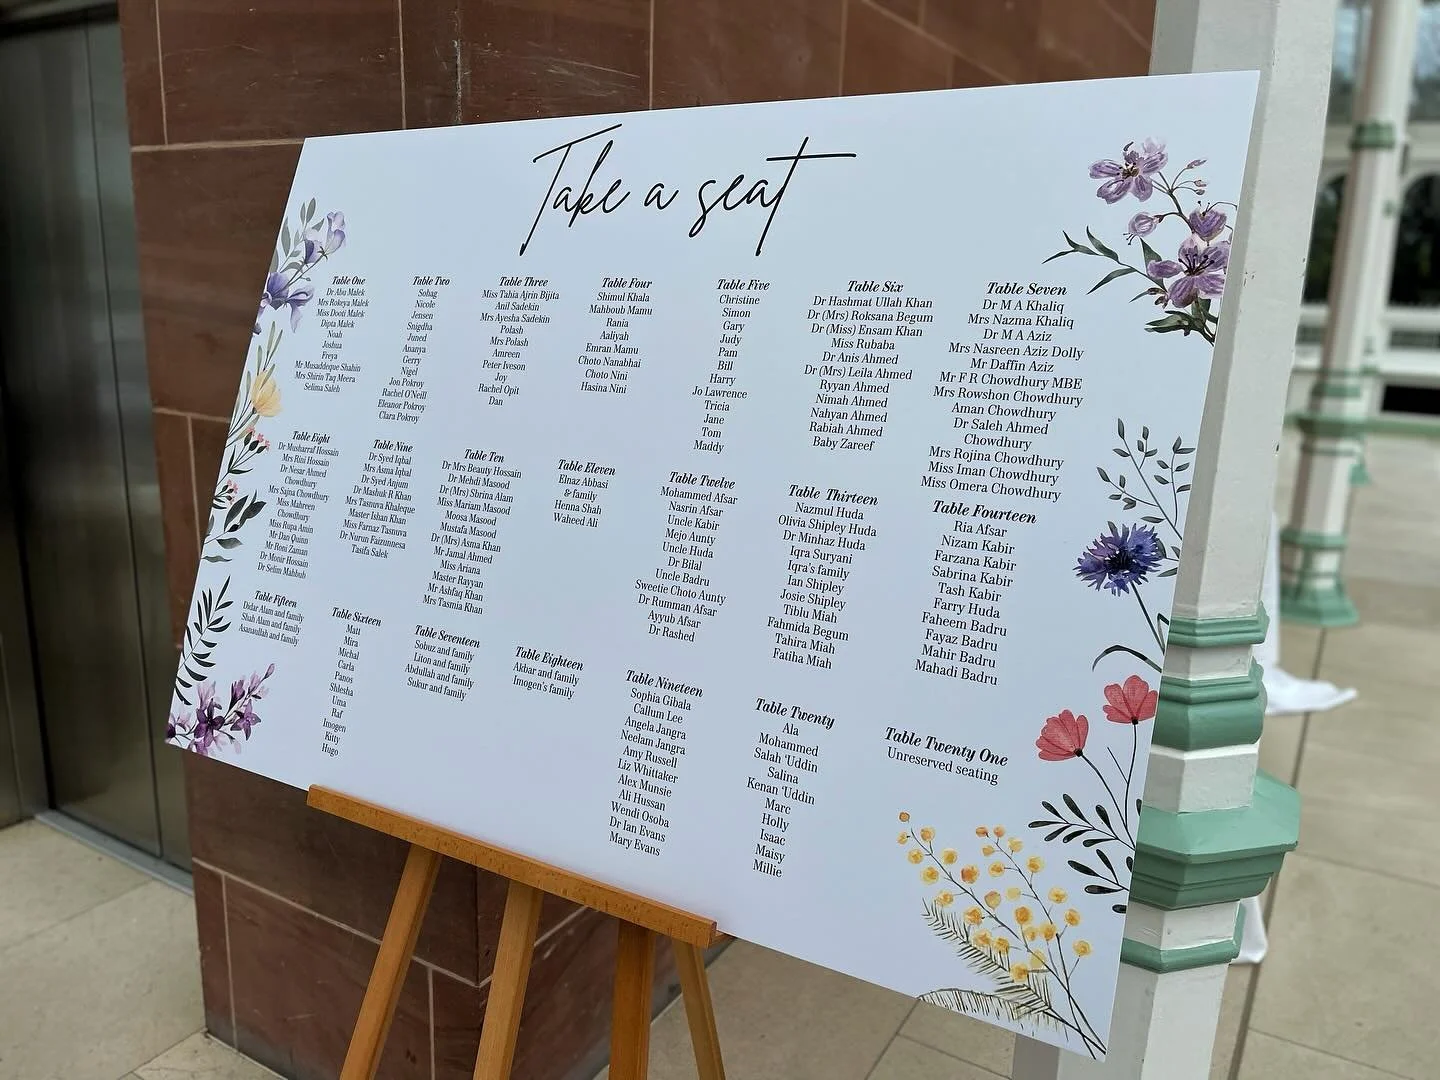 Take a seat
Table One
Dr Abu Malek
Mrs Rokeya Malek
Miss Dooti Malek
Dipta Malek
Noah
Joshua
Freya
Mr Musaddeque Shahin
Mrs Shirin Taq Meera
Selima Saleh
Table Two
Sohag
Nicole
Jensen
Snigdha
Juned
Ananya
Gerry
Nigel
Jon Pokroy
Rachel O'Neill
Eleanor Pokroy
Clara Pokroy
Table Three
Miss Tahia Ajrin Bijita
Anil Sadekin
Mrs Ayesha Sadekin
Polash
Mrs Polash
Amreen
Peter Iveson
Joy
Rachel Opit
Dan
Table Four
Shimul Khala
Mahboub Mamu
Rania
Aaliyah
Emran Mamu
Choto Nanabhai
Choto Nini
Hasina Nini
Table Five
Christine
Simon
Gary
Judy
Pam
Bill
Harry
Jo Lawrence
Tricia
Jane
Tom
Maddy
Table Six
Dr Hashmat Ullah Khan
Dr (Mrs) Roksana Begum
Dr (Miss) Ensam Khan
Miss Rubaba
Dr Anis Ahmed
Dr (Mrs) Leila Ahmed
Ryyan Ahmed
Nimah Ahmed
Nahyan Ahmed
Rabiah Ahmed
Baby Zareef
Table Seven
Dr M A Khaliq
Mrs Nazma Khaliq
Dr M A Aziz
Mrs Nasreen Aziz Dolly
Mr Daffin Aziz
Mr F R Chowdhury MBE
Mrs Rowshon Chowdhury
Aman Chowdhury
Dr Saleh Ahmed
Chowdhury
Mrs Rojina Chowdhury
Miss Iman Chowdhury
Miss Omera Chowdhury
Table Eight
Dr Musharraf Hossain
Mrs Rini Hossain
Dr Nesar Ahmed
Chowdhury
Mrs Sajna Chowdhury
Miss Mahreen
Chowdhury
Miss Rupa Amin
Mr Dan Quinn
Mr Roni Zaman
Dr Monir Hossain
Dr Selim Mahbub
Table Nine
Dr Syed Iqbal
Mrs Asma Iqbal
Dr Syed Anjum
Dr Mashuk R Khan
Mrs Tasnuva Khaleque
Master Ishan Khan
Miss Farnaz Tasnuva
Dr Nurun Faizunnesa
Tasifa Salek
Table Ten
Dr Mrs Beauty Hossain
Dr Mehdi Masood
Dr (Mrs) Shrina Alam
Miss Mariam Masood
Moosa Masood
Mustafa Masood
Dr (Mrs) Asma Khan
Mr Jamal Ahmed
Miss Ariana
Master Rayyan
Mr Ashfaq Khan
Mrs Tasmia Khan
Table Eleven
Elnaz Abbasi
& family
Henna Shah
Waheed Ali
Table Twelve
Mohammed Afsar
Nasrin Afsar
Uncle Kabir
Mejo Aunty
Uncle Huda
Dr Bilal
Uncle Badru
Sweetie Choto Aunty
Dr Rumman Afsar
Ayyub Afsar
Dr Rashed
Table Thirteen
Nazmul Huda
Olivia Shipley Huda
Dr Minhaz Huda
Iqra Suryani
Iqra's family
Ian Shipley
Josie Shipley
Tiblu Miah
Fahmida Begum
Tahira Miah
Fatiha Miah
Table Fourteen
Ria Afsar
Nizam Kabir
Farzana Kabir
Sabrina Kabir
Tash Kabir
Farry Huda
Faheem Badru
Fayaz Badru
Mahir Badru
Mahadi Badru
Table Fifteen
Didar Alam and family
Shah Alam and family
Asanaullah and family
Table Sixteen
Matt
Mira
Michal
Carla
Panos
Shlesha
Uma
Raf
Imogen
Kitty
Hugo
Table Seventeen
Sobuz and family
Liton and family
Abdullah and family
Sukur and family
Table Eighteen
Akbar and family
Imogen's family
Table Nineteen
Sophia Gibala
Callum Lee
Angela Jangra
Neelam Jangra
Amy Russell
Liz Whittaker
Alex Munsie
Ali Hussan
Wendi Osoba
Dr Ian Evans
Mary Evans
Table Twenty
Ala
Mohammed
Salah 'Uddin
Salina
Kenan 'Uddin
Marc
Holly
Isaac
Maisy
Millie
Table Twenty One
Unreserved seating